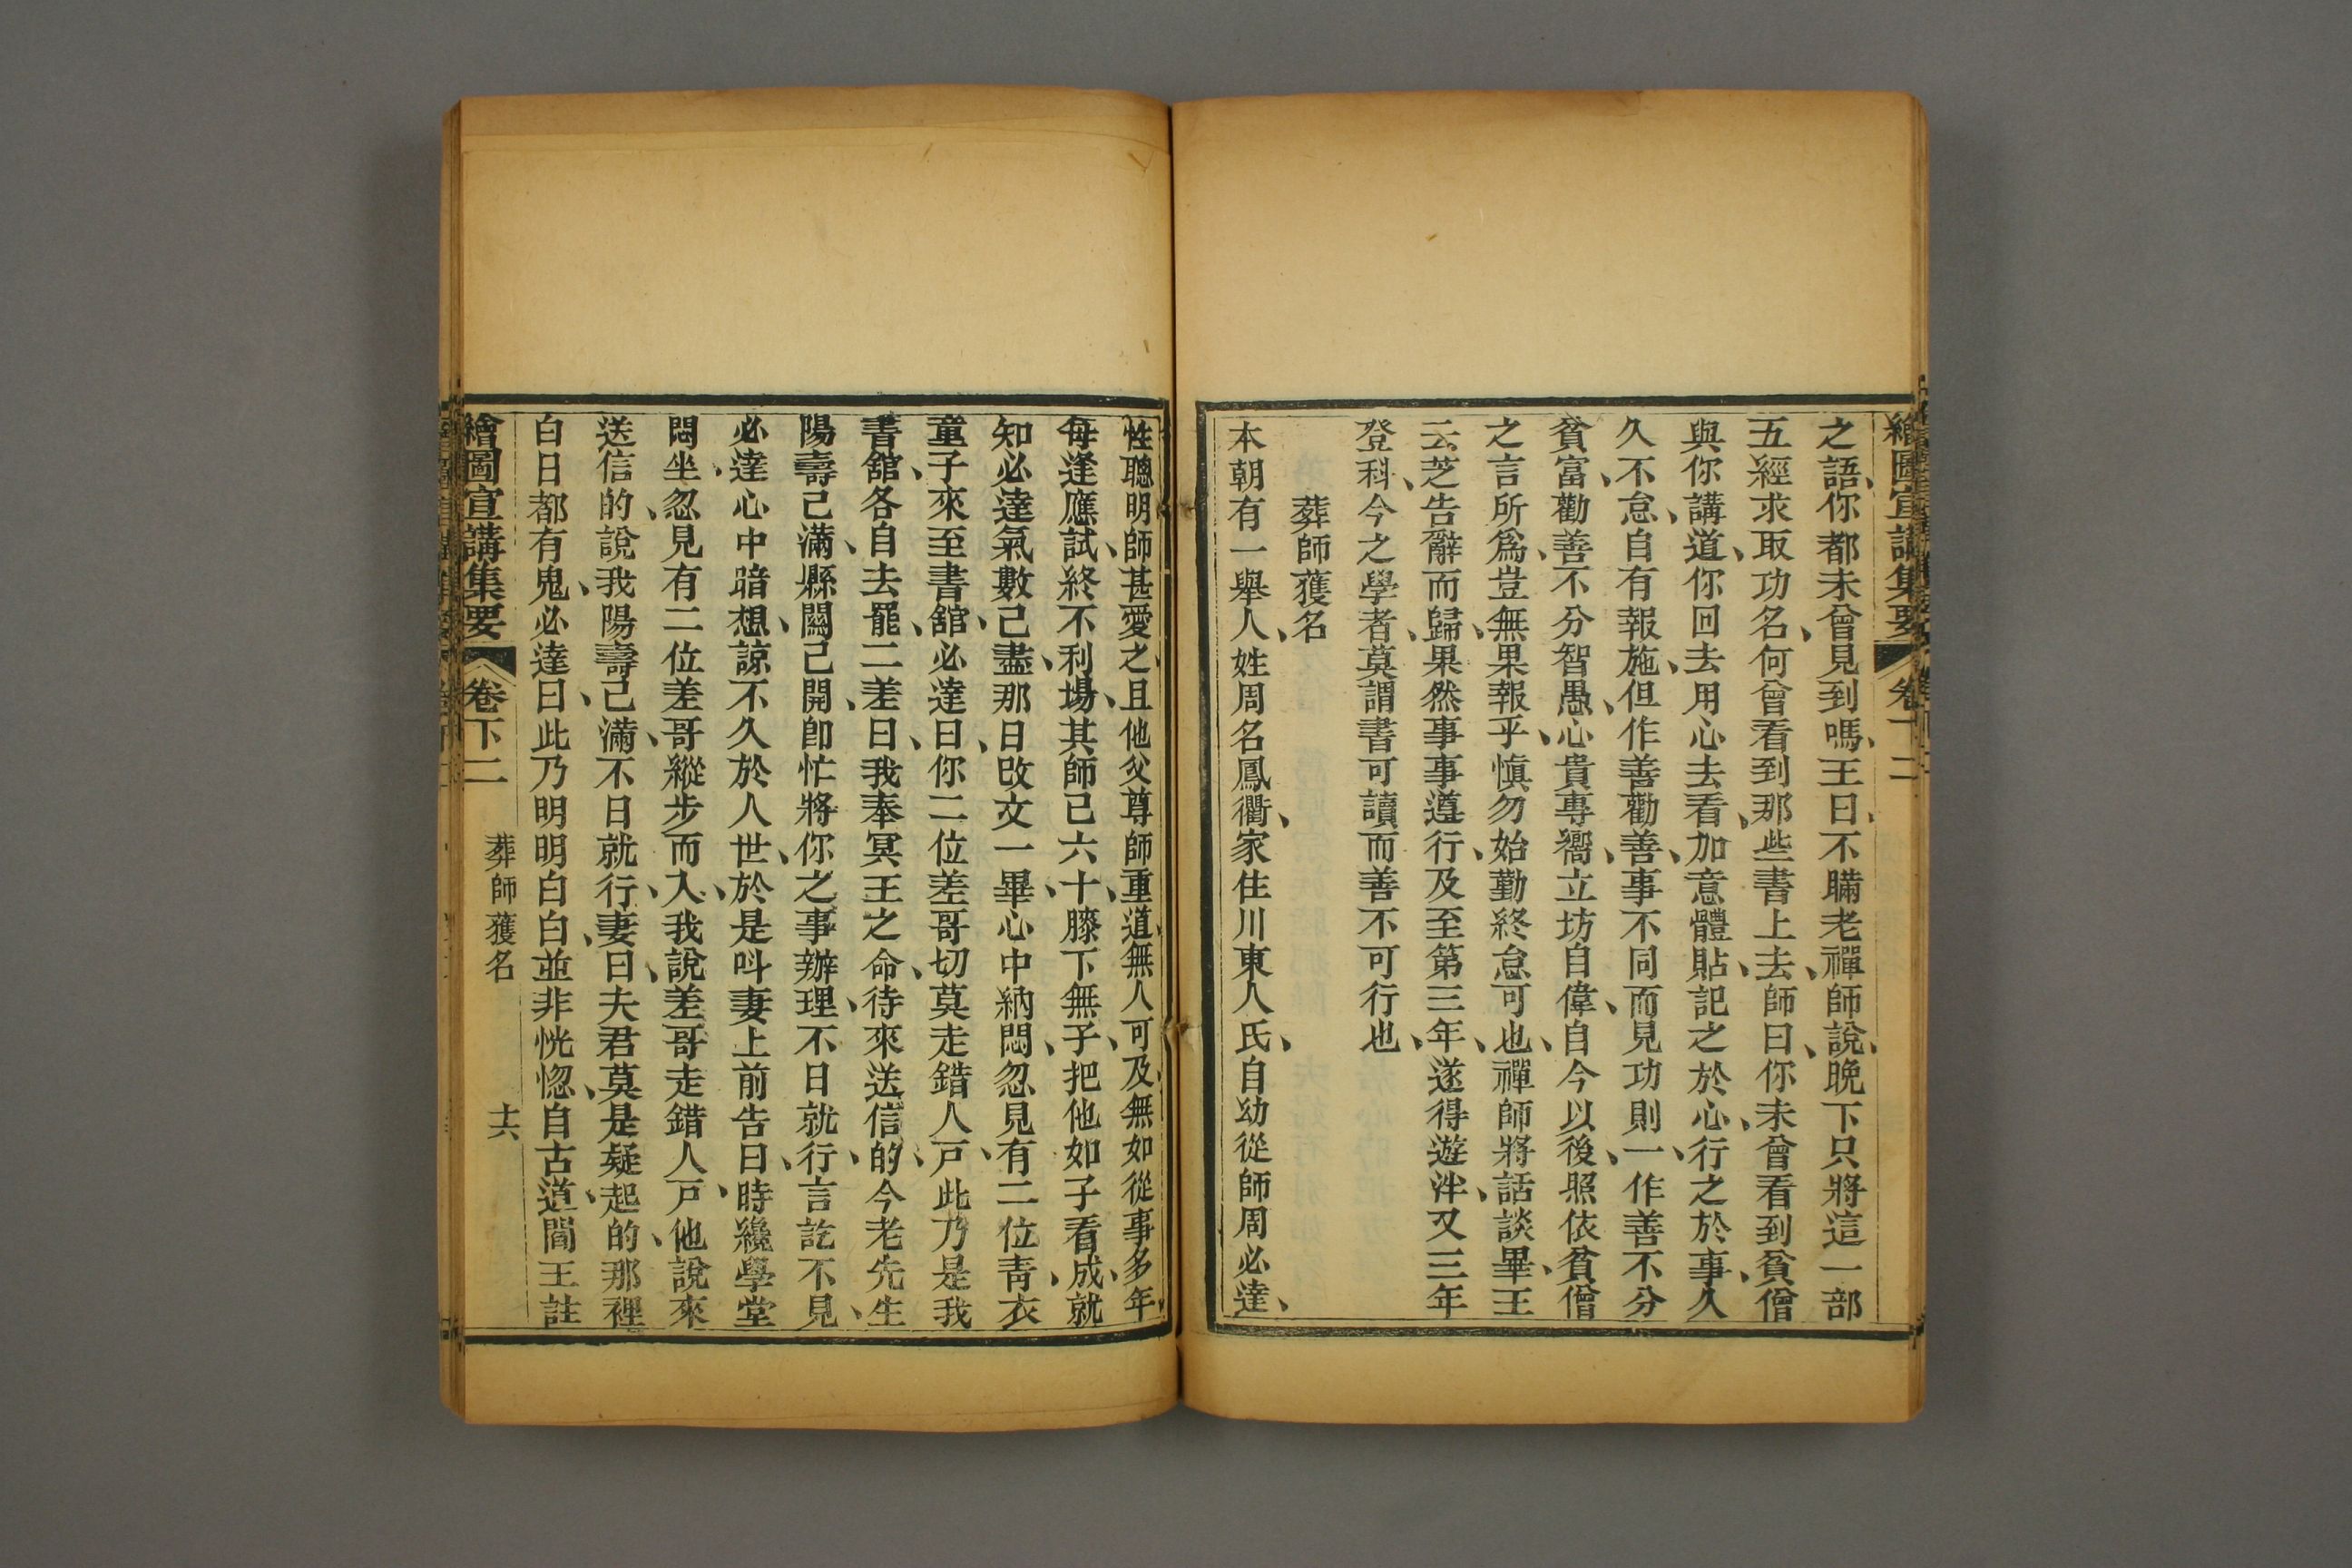 繪圖宣講集要
之語、你都未曾見到嗎、王曰、不瞞老禪師說、晚下只將這一部
五經求取功名、何曾看到那些書上去、師曰、你未曾看到、貧僧
與你講道、你回去用心去看、加意體貼、記之於心、行之於事、久
久不怠、自有報施、但作善勸善、事不同而見功則一、作善不分
貧富、勸善不分智愚、心貴專嚮、立坊自偉、自今以後、照依貧僧
之言所爲、豈無果報乎、愼勿始勤終怠可也、禪師將話談畢、王
云芝告辭而歸、果然事事遵行、及至第三年、遂得遊泮、又三年
登科、今之學者、莫謂書可讀而善不可行也、
葬師獲名
本朝有一舉人、姓周名鳳衢、家住川東人氏、自幼從師周必達、
性聰明師甚愛之、且他父尊師重道、無人可及、無如從事多年、
每逢應試、終不利場、其師已六十、膝下無子、把他如子看成、就
知必達氣數已盡、那日改文一畢、心中納悶、忽見有二位青衣
童子、來至書舘、必達曰、你二位差哥、切莫走錯人戶、此乃是我
書舘、各自去罷、二差曰、我奉冥王之命、待來送信的、今老先生
陽壽已滿、縣闗已開、卽忙將你之事辦理、不日就行、言訖不見、
必達心中暗想、諒不久於人世、於是呌妻上前告曰、時纔學堂
悶坐、忽見有二位差哥縱步而入、我說差哥走錯人戶、他說來
送信的、說我陽壽已滿、不日就行、妻曰、夫君莫是疑起的、那裡
白日都有鬼、必達曰、此乃明明白白、並非恍惚、自古道、閻王註
繪圖宣講集要 卷下二 葬師獲名 十六